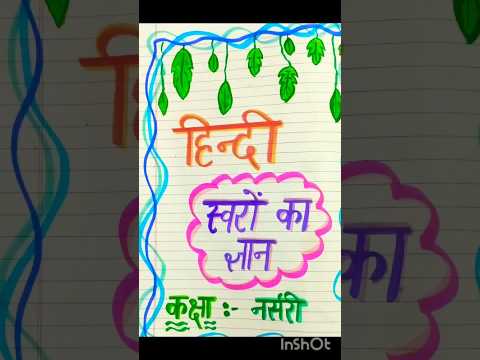 हिन्दी
स्वरों का
ज्ञान
कक्षा :- नर्सरी
InShOt